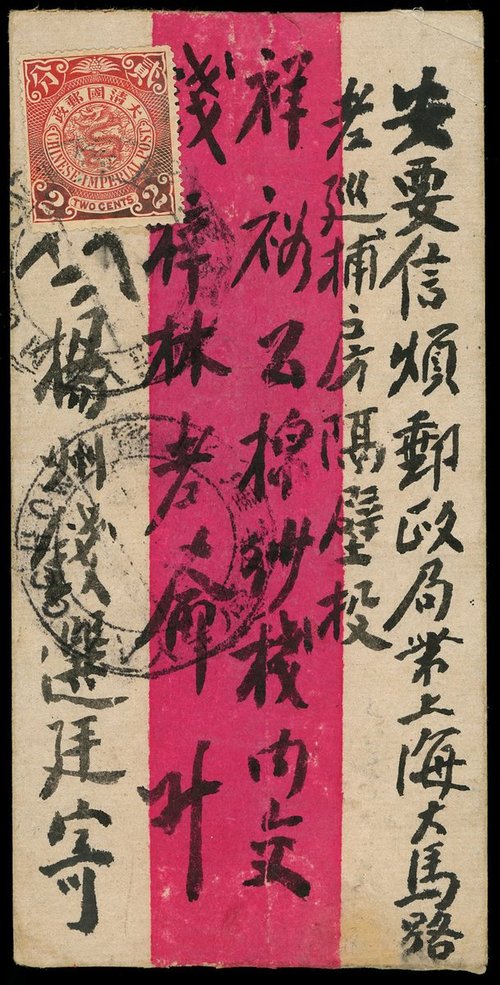 安要信煩郵政局带上海大馬路
老巡捕房隔壁投
祥裕公棉紗棧內交
錢梓林老爺 升
楊州錢選廷寄
大清國郵政
貳分
CHINESE IMPERIAL POST
2 TWO CENTS 2